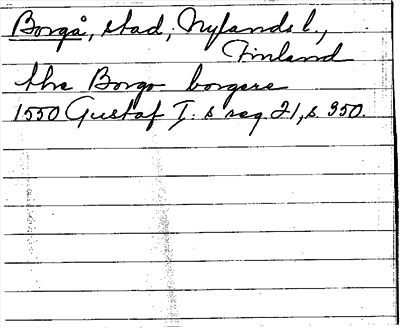 Borgå, stad, Nylands l.,
Finland
the Borgo borgere
1550 Gustaf I. s reg. 21, s. 350.